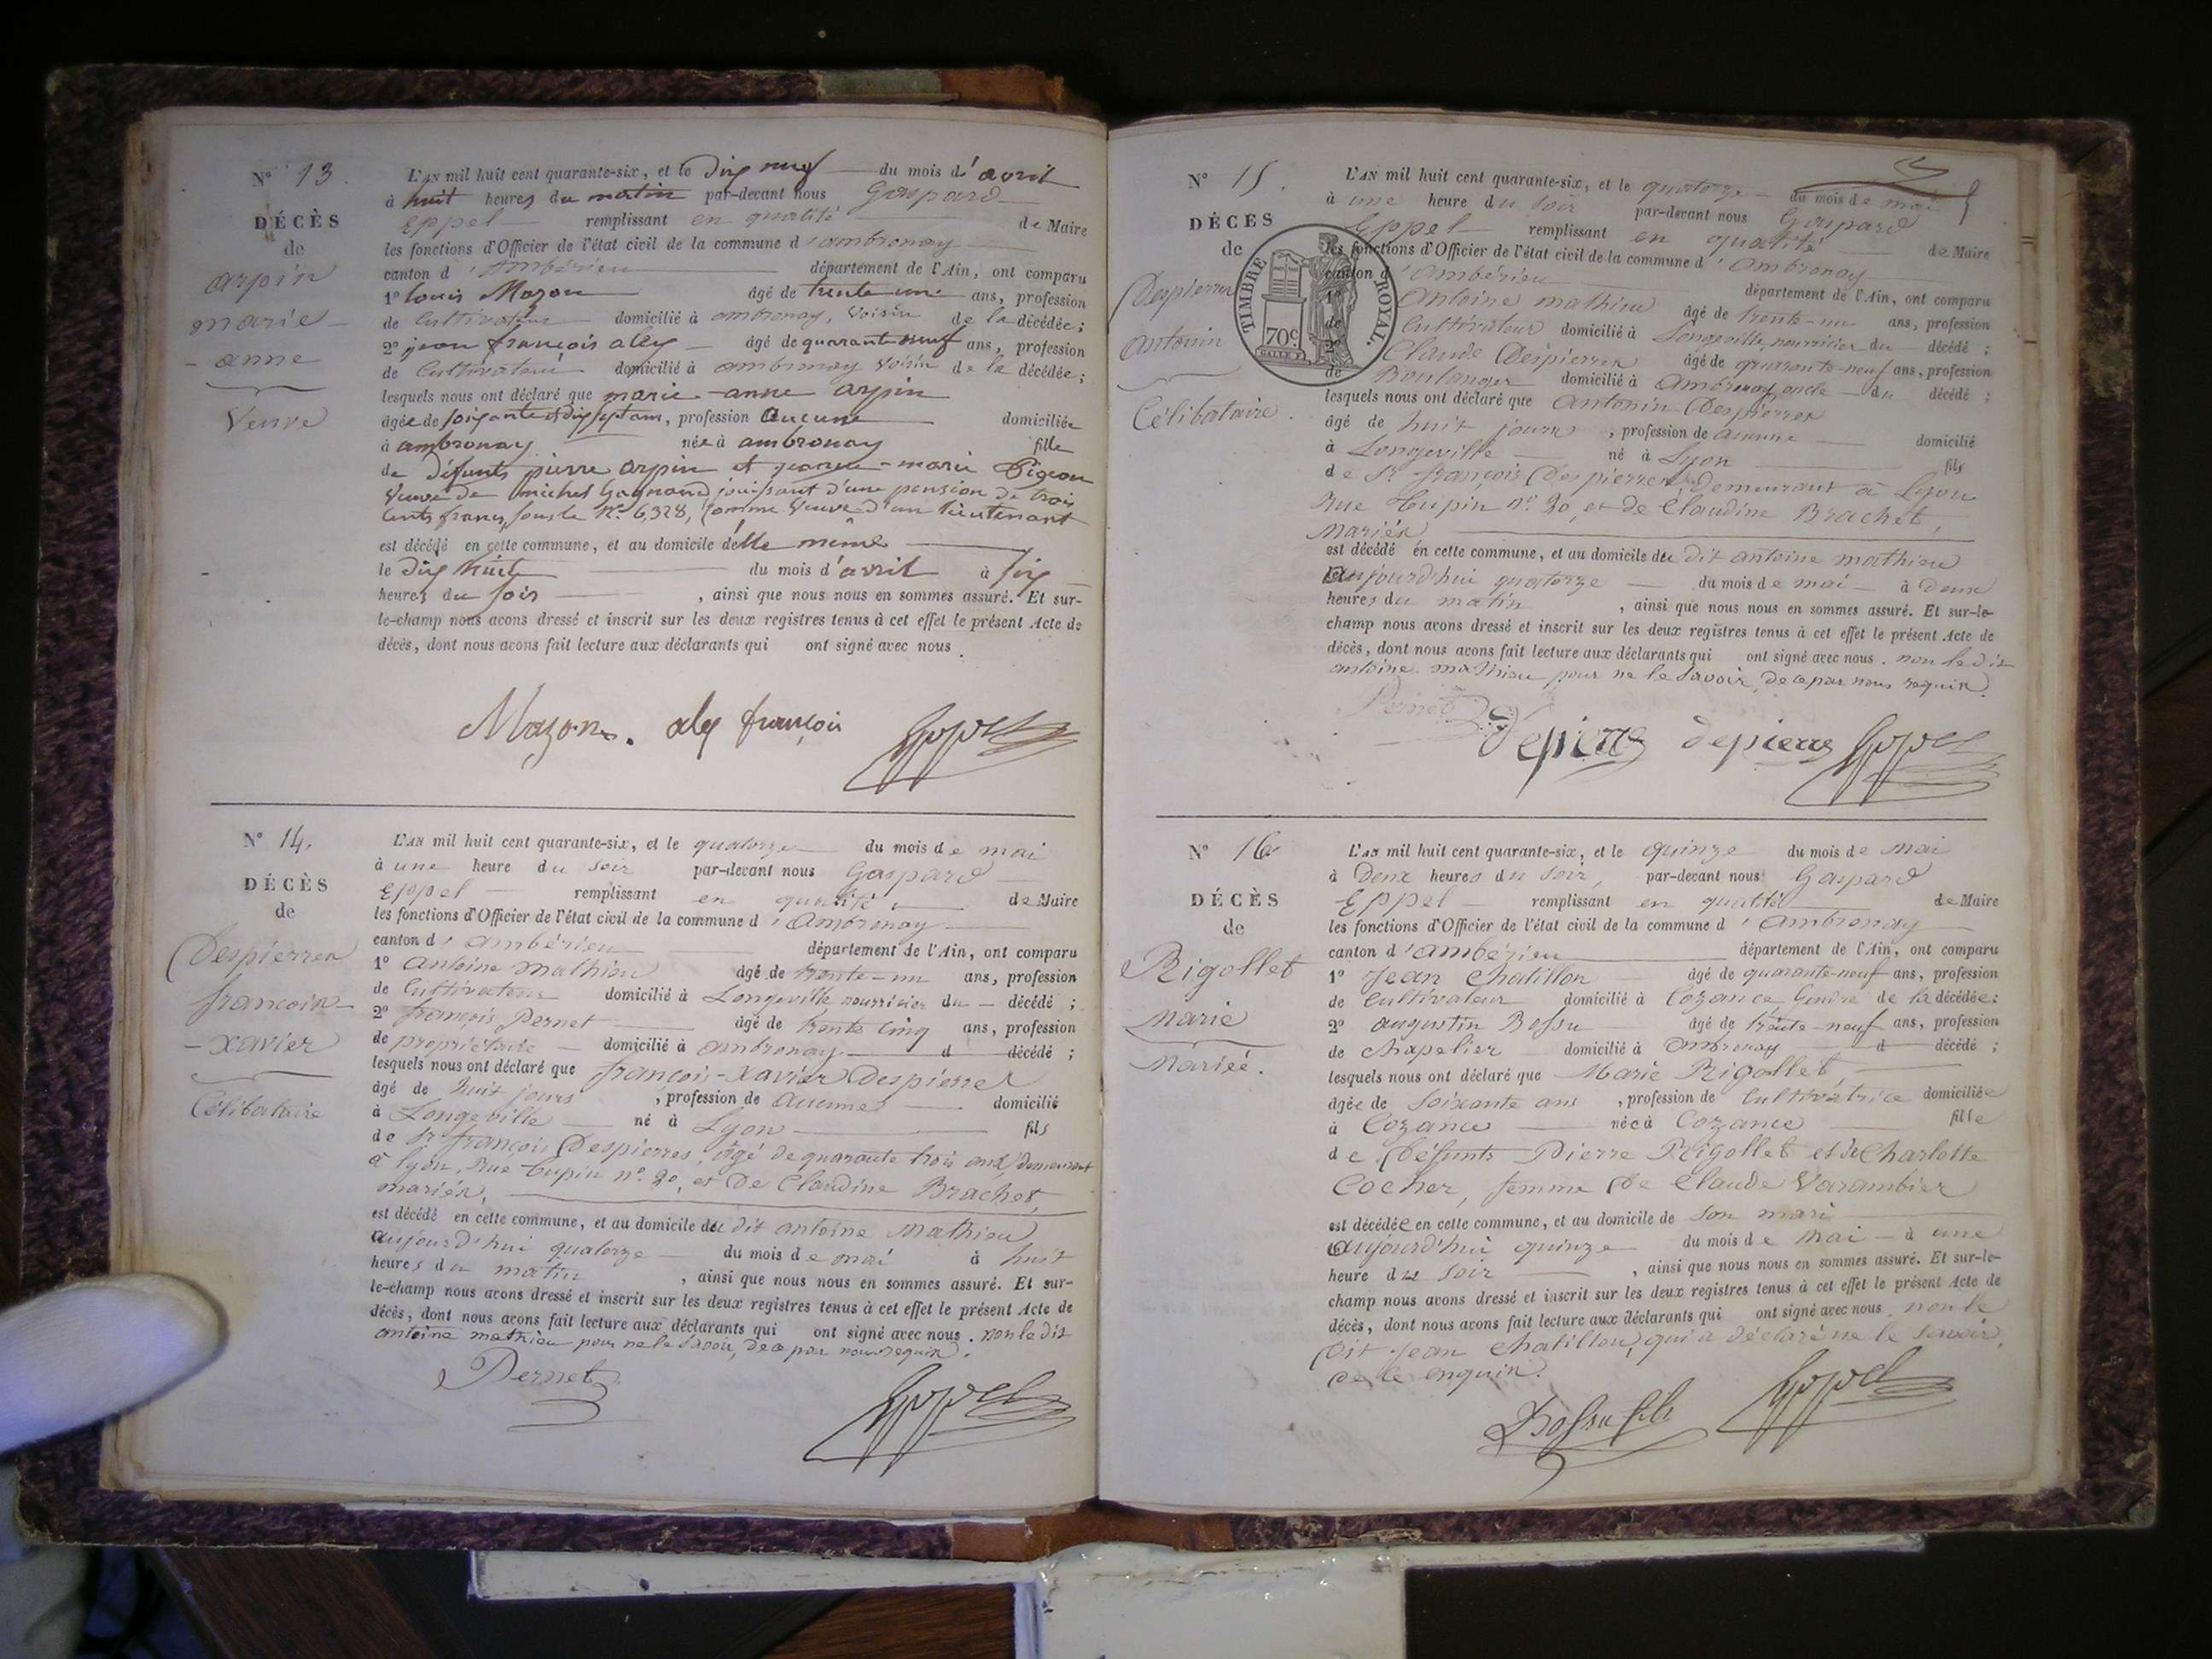 N° 13.
DÉCÈS
de
arpin
marie-
- anne
Veuve
L'AN mil huit cent quarante-six, et le dix neuf du mois d'avril
à huit heures du matin par-devant nous Gaspard
Eppel remplissant en qualité de Maire
les fonctions d'Officier de l'état civil de la commune d'ambronay
canton d'Ambérieu département de l'Ain, ont comparu
1° louis Mazon âgé de trente un ans, profession
de Cultivateur domicilié à ambronay, Voisin de la décédée;
2° jean françois aley âgé de quarante neuf ans, profession
de Cultivateur domicilié à ambronay Voisin de la décédée;
lesquels nous ont déclaré que marie-anne arpin
âgée de soixante et dix sept ans, profession Aucune domiciliée
à ambronay née à ambronay fille
de défunts pierre arpin et jeanne-marie Pigeon
Veuve de michel Gagnand, jouissant d'une pension de trois
cents francs, sous le N° 6,328, comme Veuve d'un lieutenant
est décédé en cette commune, et au domicile d'elle même
le dix huit du mois d'avril à six
heures du soir, ainsi que nous nous en sommes assuré. Et sur-
le-champ nous avons dressé et inscrit sur les deux registres tenus à cet effet le présent Acte de
décès, dont nous avons fait lecture aux déclarants qui ont signé avec nous.
Mazon. aley françois Eppel
N° 14.
DÉCÈS
de
Despierres
françois-
- xavier
Célibataire
L'AN mil huit cent quarante-six, et le quatorze du mois de mai
à une heure du soir par-devant nous Gaspard
Eppel remplissant en qualité de Maire
les fonctions d'Officier de l'état civil de la commune d'Ambronay
canton d'ambérieu département de l'Ain, ont comparu
1° Antoine Mathieu âgé de trente-un ans, profession
de Cultivateur domicilié à Longeville, nourricier du décédé;
2° françois Pernet âgé de trente cinq ans, profession
de propriétaire domicilié à ambronay d décédé;
lesquels nous ont déclaré que françois-xavier Despierres
âgé de huit jours, profession de aucune domicilié
à Longeville né à Lyon fils
de Sr françois Despierres, âgé de quarante trois ans, demeurant
à lyon, Rue tupin n° 20, et De Claudine Brachet,
mariés,
est décédé en cette commune, et au domicile du dit antoine Mathieu
aujourd'hui quatorze du mois de mai à huit
heures du matin, ainsi que nous nous en sommes assuré. Et sur-
le-champ nous avons dressé et inscrit sur les deux registres tenus à cet effet le présent Acte de
décès, dont nous avons fait lecture aux déclarants qui ont signé avec nous. non le dit
antoine mathieu pour ne le savoir, de ce par nous requis.
Pernet Eppel
N° 15.
DÉCÈS
de
Despierres
antonin
Célibataire.
TIMBRE ROYAL.
70c
L'AN mil huit cent quarante-six, et le quatorze du mois de mai
à une heure du soir par-devant nous Gaspard
Eppel remplissant en qualité de Maire
les fonctions d'Officier de l'état civil de la commune d'ambronay
canton d'ambérieu département de l'Ain, ont comparu
1° Antoine mathieu âgé de trente-un ans, profession
de Cultivateur domicilié à Longeville, nourricier du décédé;
2° Claude Despierres âgé de quarante-neuf ans, profession
de Boulanger domicilié à Ambronay, oncle du décédé;
lesquels nous ont déclaré que Antonin Despierres
âgé de huit jours, profession de aucune domicilié
à Longeville né à Lyon fils
de Sr françois Despierres, demeurant à Lyon
Rue tupin n° 20, et de Claudine Brachet,
mariés
est décédé en cette commune, et au domicile du dit antoine mathieu
aujourd'hui quatorze du mois de mai à deux
heures du matin, ainsi que nous nous en sommes assuré. Et sur-le-
champ nous avons dressé et inscrit sur les deux registres tenus à cet effet le présent Acte de
décès, dont nous avons fait lecture aux déclarants qui ont signé avec nous. non le dit
antoine mathieu pour ne le savoir, de ce par nous requis.
Pernet
Depierre depierre Eppel
N° 16
DÉCÈS
de
Rigollet
Marie
Mariée.
L'AN mil huit cent quarante-six, et le quinze du mois de Mai
à Deux heures du soir, par-devant nous Gaspard
Eppel remplissant en qualité de Maire
les fonctions d'Officier de l'état civil de la commune d'ambronay
canton d'ambérieu département de l'Ain, ont comparu
1° Jean Chatillon âgé de quarante-neuf ans, profession
de Cultivateur domicilié à Cozance, Gendre de la décédée;
2° augustin Bossu âgé de trente-neuf ans, profession
de Chapelier domicilié à ambronay d décédé;
lesquels nous ont déclaré que Marie Rigollet,
âgée de soixante ans, profession de Cultivatrice domiciliée
à Cozance née à Cozance fille
de Défunts Pierre Rigollet et de Charlotte
Cocher, femme de Claude Varambier
est décédée en cette commune, et au domicile de son mari
aujourd'hui quinze du mois de mai à une
heure du soir, ainsi que nous nous en sommes assuré. Et sur-le-
champ nous avons dressé et inscrit sur les deux registres tenus à cet effet le présent Acte de
décès, dont nous avons fait lecture aux déclarants qui ont signé avec nous, non le
Dit Jean Chatillon, qui a déclaré ne le savoir,
de ce enquis.
Bossu fils Eppel